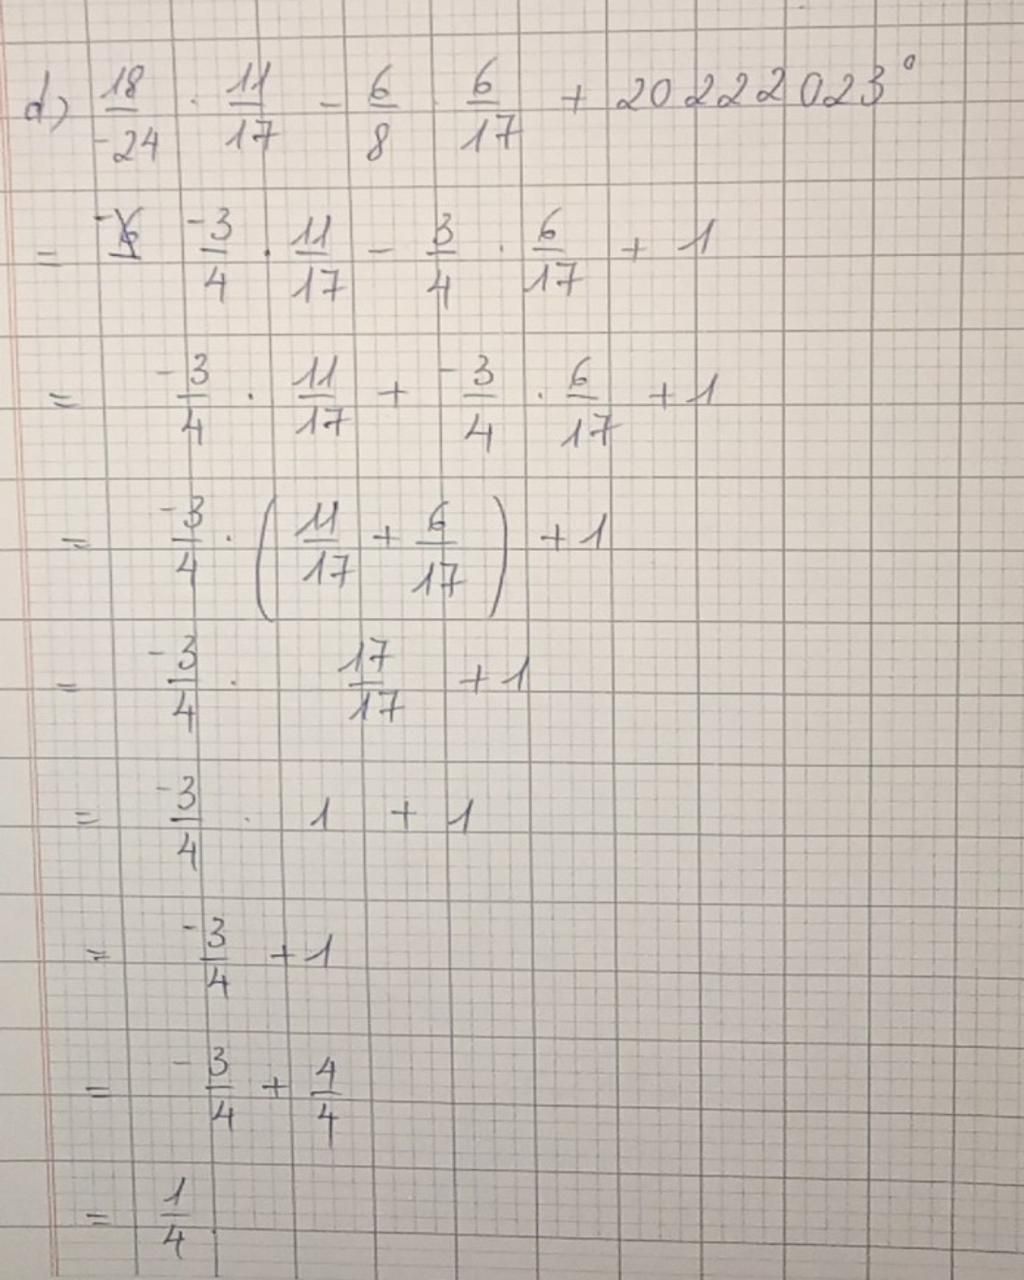 d) 18/-24 · 11/17 - 6/8 · 6/17 + 20222023⁰
= -3/4 · 11/17 - 3/4 · 6/17 + 1
= -3/4 · 11/17 + -3/4 · 6/17 + 1
= -3/4 · (11/17 + 6/17) + 1
= -3/4 · 17/17 + 1
= -3/4 · 1 + 1
= -3/4 + 1
= -3/4 + 4/4
= 1/4.